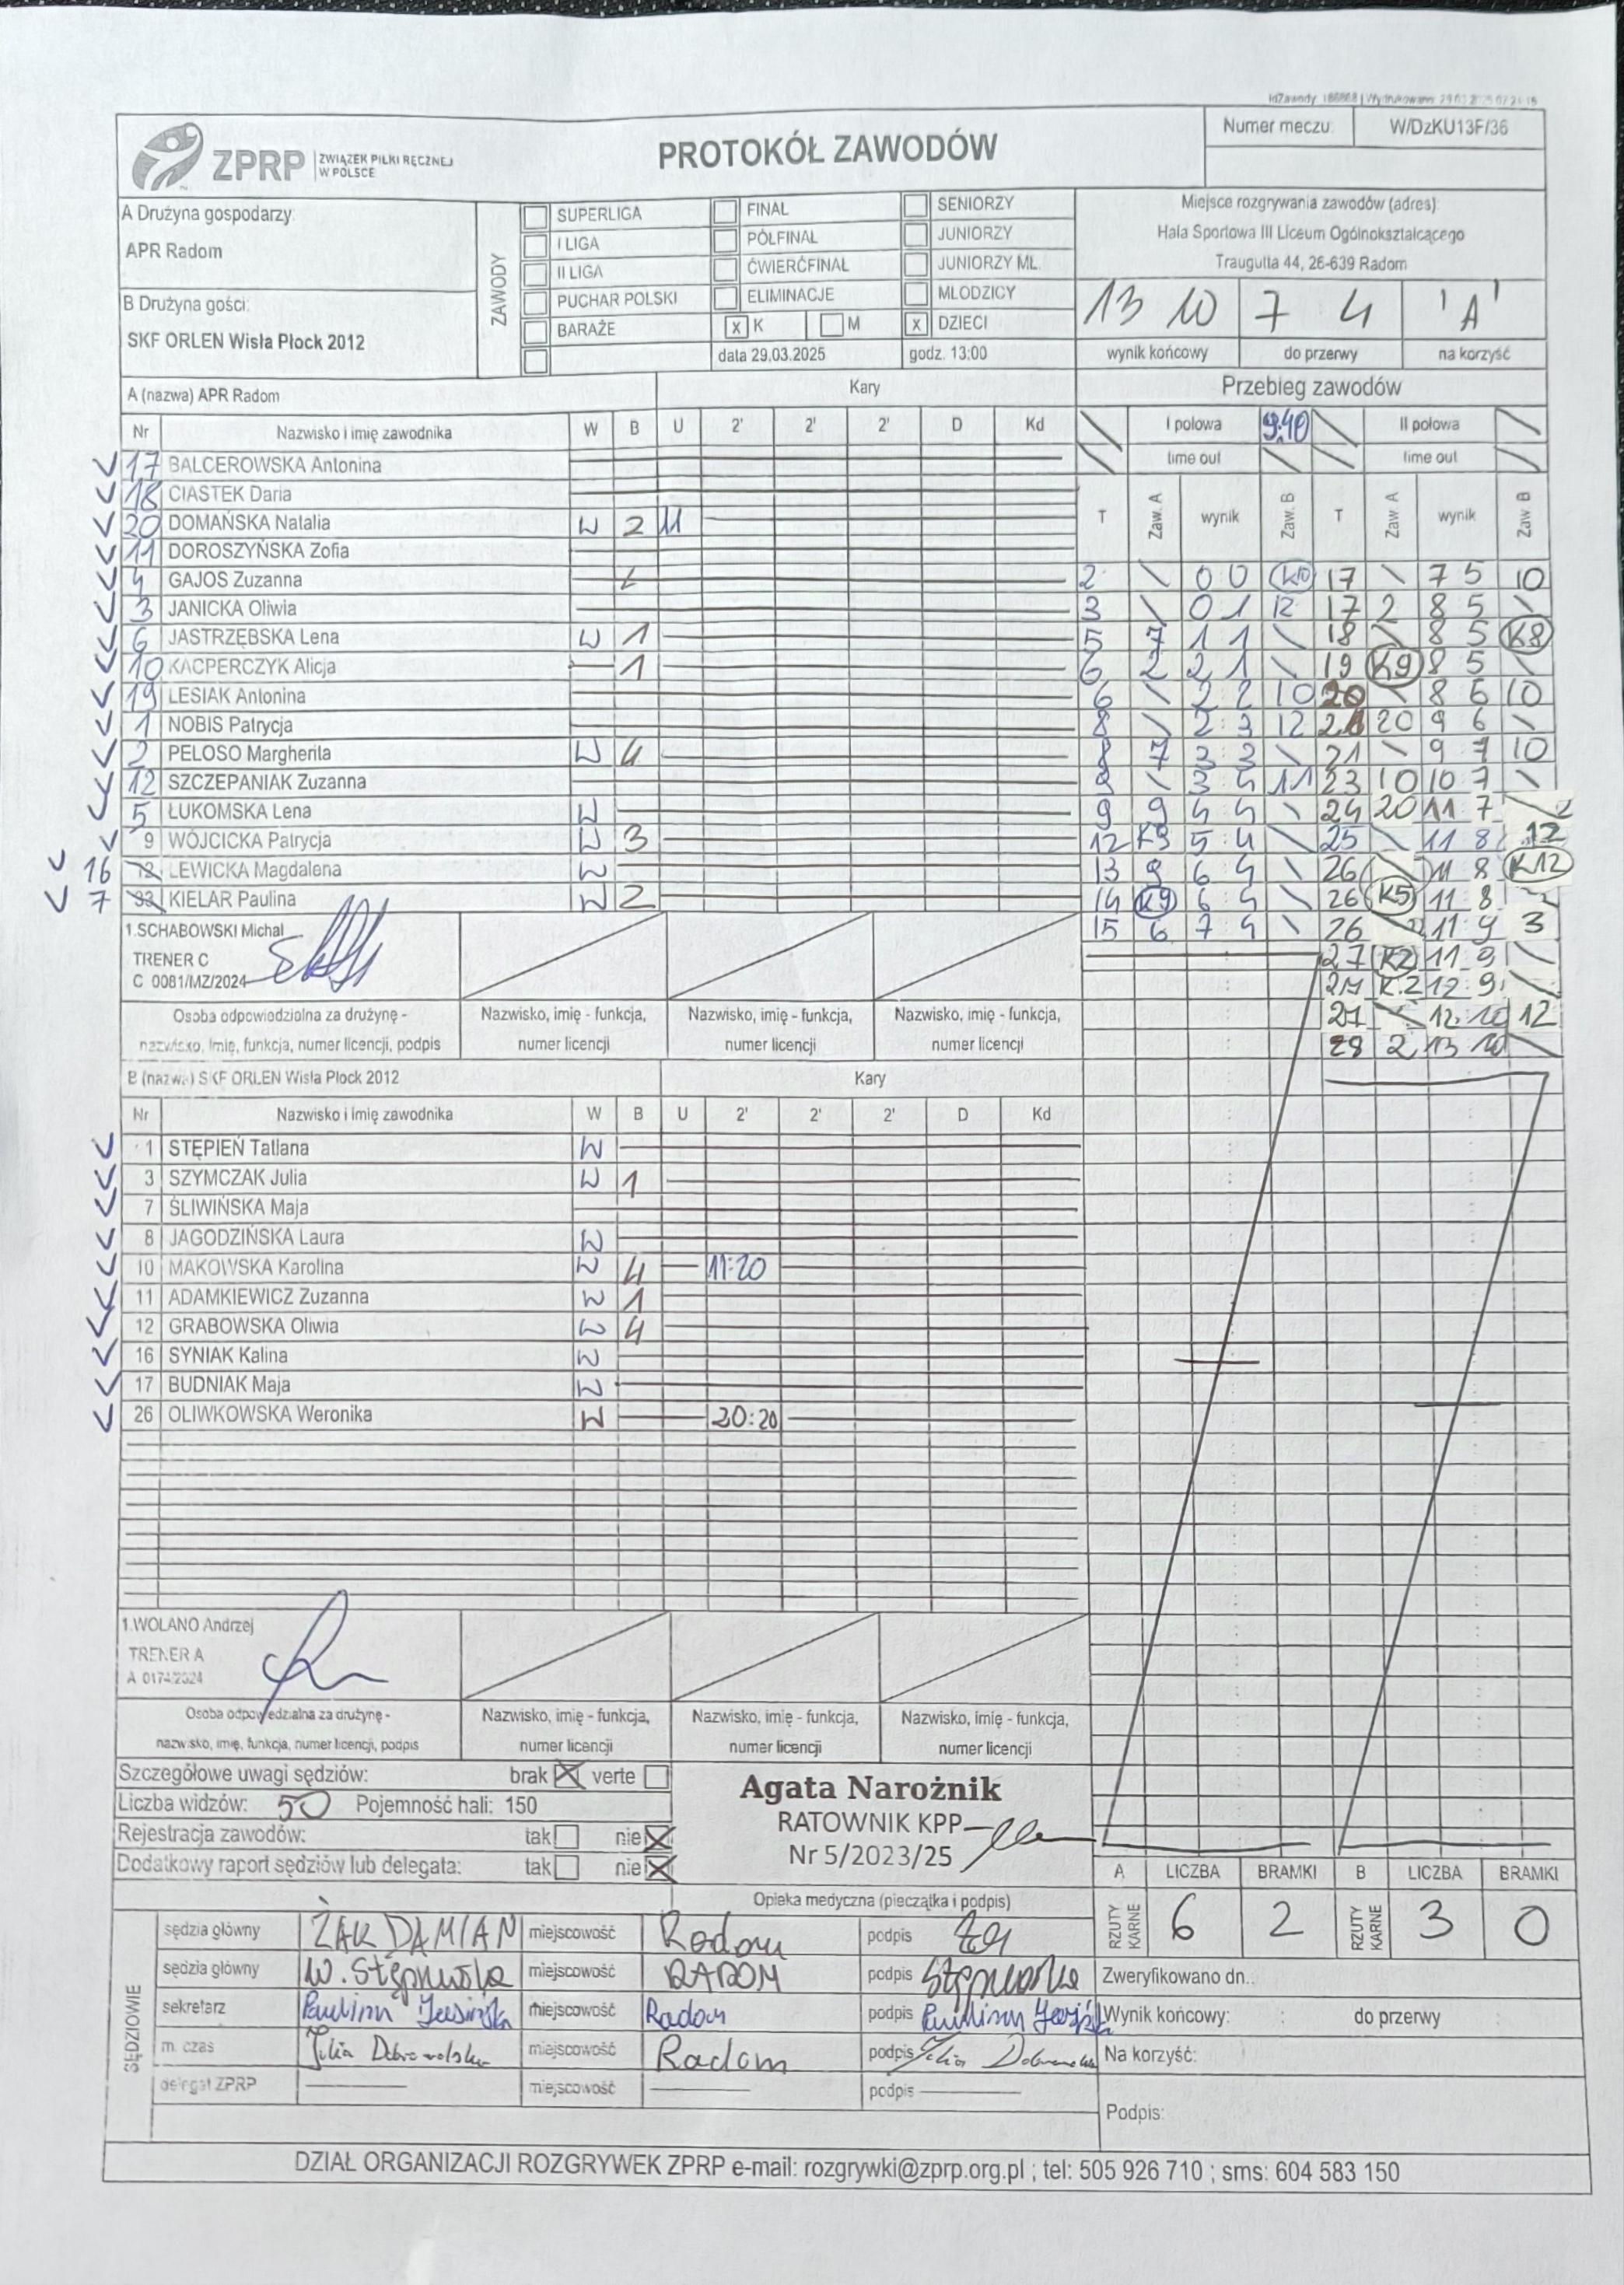 IdZawody: 186868 | Wydrukowano: 29.03.2025 07:24:15
ZPRP ZWIĄZEK PIŁKI RĘCZNEJ W POLSCE
PROTOKÓŁ ZAWODÓW
Numer meczu: W/DzKU13F/36
A Drużyna gospodarzy:
APR Radom
B Drużyna gości:
SKF ORLEN Wisła Płock 2012
ZAWODY
SUPERLIGA FINAŁ SENIORZY
I LIGA PÓŁFINAŁ JUNIORZY
II LIGA ĆWIERĆFINAŁ JUNIORZY MŁ.
PUCHAR POLSKI ELIMINACJE MŁODZICY
BARAŻE x K M x DZIECI
data 29.03.2025 godz. 13:00
Miejsce rozgrywania zawodów (adres):
Hala Sportowa III Liceum Ogólnokształcącego
Traugutta 44, 26-639 Radom
13 10 7 4 'A'
wynik końcowy do przerwy na korzyść
A (nazwa) APR Radom Kary
Nr Nazwisko i imię zawodnika W B U 2' 2' 2' D Kd
17 BALCEROWSKA Antonina
18 CIASTEK Daria
20 DOMAŃSKA Natalia W 2 U
11 DOROSZYŃSKA Zofia
4 GAJOS Zuzanna
3 JANICKA Oliwia
6 JASTRZĘBSKA Lena W 1
10 KACPERCZYK Alicja 1
19 LESIAK Antonina
1 NOBIS Patrycja
2 PELOSO Margherita W 4
12 SZCZEPANIAK Zuzanna
5 ŁUKOMSKA Lena W
9 WÓJCICKA Patrycja W 3
16 LEWICKA Magdalena W
7 KIELAR Paulina W 2
1.SCHABOWSKI Michał
TRENER C
C 0081/MZ/2024
Osoba odpowiedzialna za drużynę -
nazwisko, imię, funkcja, numer licencji, podpis
Nazwisko, imię - funkcja,
numer licencji
Nazwisko, imię - funkcja,
numer licencji
Nazwisko, imię - funkcja,
numer licencji
Przebieg zawodów
I połowa 9:40 II połowa
time out time out
T Zaw. A wynik Zaw. B T Zaw. A wynik Zaw B
2 \ 0 0 K10 17 \ 7 5 10
3 \ 0 1 12 17 2 8 5 \
5 7 1 1 \ 18 \ 8 5 K8
6 2 2 1 \ 19 K9 8 5 \
6 \ 2 2 10 20 \ 8 6 10
8 \ 2 3 12 21 20 9 6 \
8 7 3 3 \ 21 \ 9 7 10
9 \ 3 4 11 23 10 10 7 \
9 9 4 4 \ 24 20 11 7 \
12 K9 5 4 \ 25 \ 11 8 12
13 9 6 4 \ 26 \ 11 8 K12
14 K9 6 4 \ 26 K5 11 8 \
15 6 7 4 \ 26 \ 11 9 3
27 K2 11 9 \
27 K2 12 9 \
27 \ 12 10 12
28 2 13 10 \
B (nazwa) SKF ORLEN Wisła Płock 2012 Kary
Nr Nazwisko i imię zawodnika W B U 2' 2' 2' D Kd
1 STĘPIEŃ Tatiana W
3 SZYMCZAK Julia W 1
7 ŚLIWIŃSKA Maja
8 JAGODZIŃSKA Laura W
10 MAKOWSKA Karolina W 4 11:20
11 ADAMKIEWICZ Zuzanna W 1
12 GRABOWSKA Oliwia W 4
16 SYNIAK Kalina W
17 BUDNIAK Maja W
26 OLIWKOWSKA Weronika W 20:20
1.WOLANO Andrzej
TRENER A
A 0174/2024
Osoba odpowiedzialna za drużynę -
nazwisko, imię, funkcja, numer licencji, podpis
Nazwisko, imię - funkcja,
numer licencji
Nazwisko, imię - funkcja,
numer licencji
Nazwisko, imię - funkcja,
numer licencji
Szczegółowe uwagi sędziów: brak X verte
Liczba widzów: 50 Pojemność hali: 150
Rejestracja zawodów: tak nie X
Dodatkowy raport sędziów lub delegata: tak nie X
Agata Narożnik
RATOWNIK KPP
Nr 5/2023/25
Opieka medyczna (pieczątka i podpis)
A LICZBA BRAMKI B LICZBA BRAMKI
RZUTY KARNE 6 2 RZUTY KARNE 3 0
SĘDZIOWIE
sędzia główny ŻAK DAMIAN miejscowość Radom podpis
sędzia główny W. Stępniewska miejscowość RADOM podpis
sekretarz Paulina miejscowość Radom podpis Paulina
m. czas Julia Dobrowolska miejscowość Radom podpis Julia Dobrowolska
delegat ZPRP miejscowość podpis
Zweryfikowano dn.:
Wynik końcowy: : do przerwy
Na korzyść:
Podpis:
DZIAŁ ORGANIZACJI ROZGRYWEK ZPRP e-mail: rozgrywki@zprp.org.pl ; tel: 505 926 710 ; sms: 604 583 150